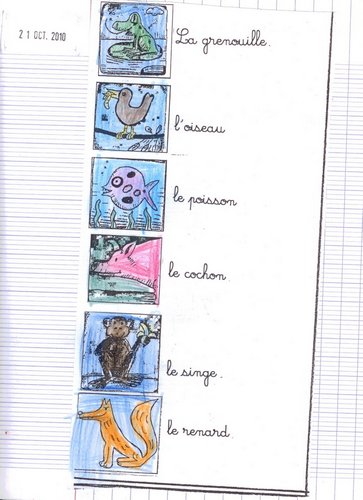 21 OCT. 2010
La grenouille.
l'oiseau
le poisson
le cochon
le singe.
le renard.